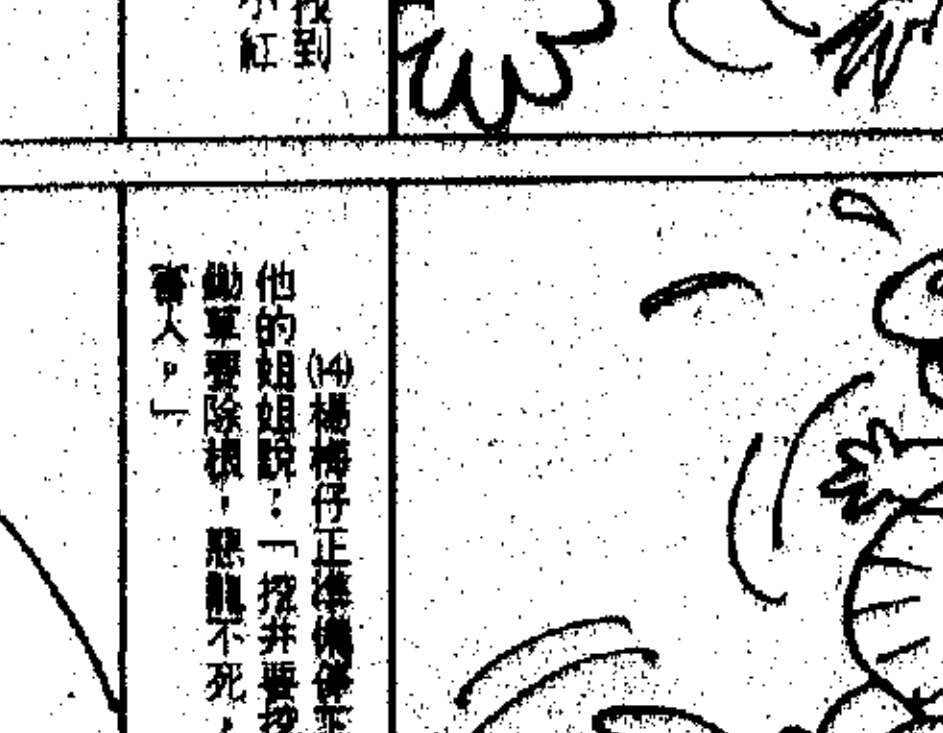 找到
小紅
(14)楊梅仔正準備停下
他的姐姐說:「挖井要挖
鋤草要除根,惡龍不死,
害人。」